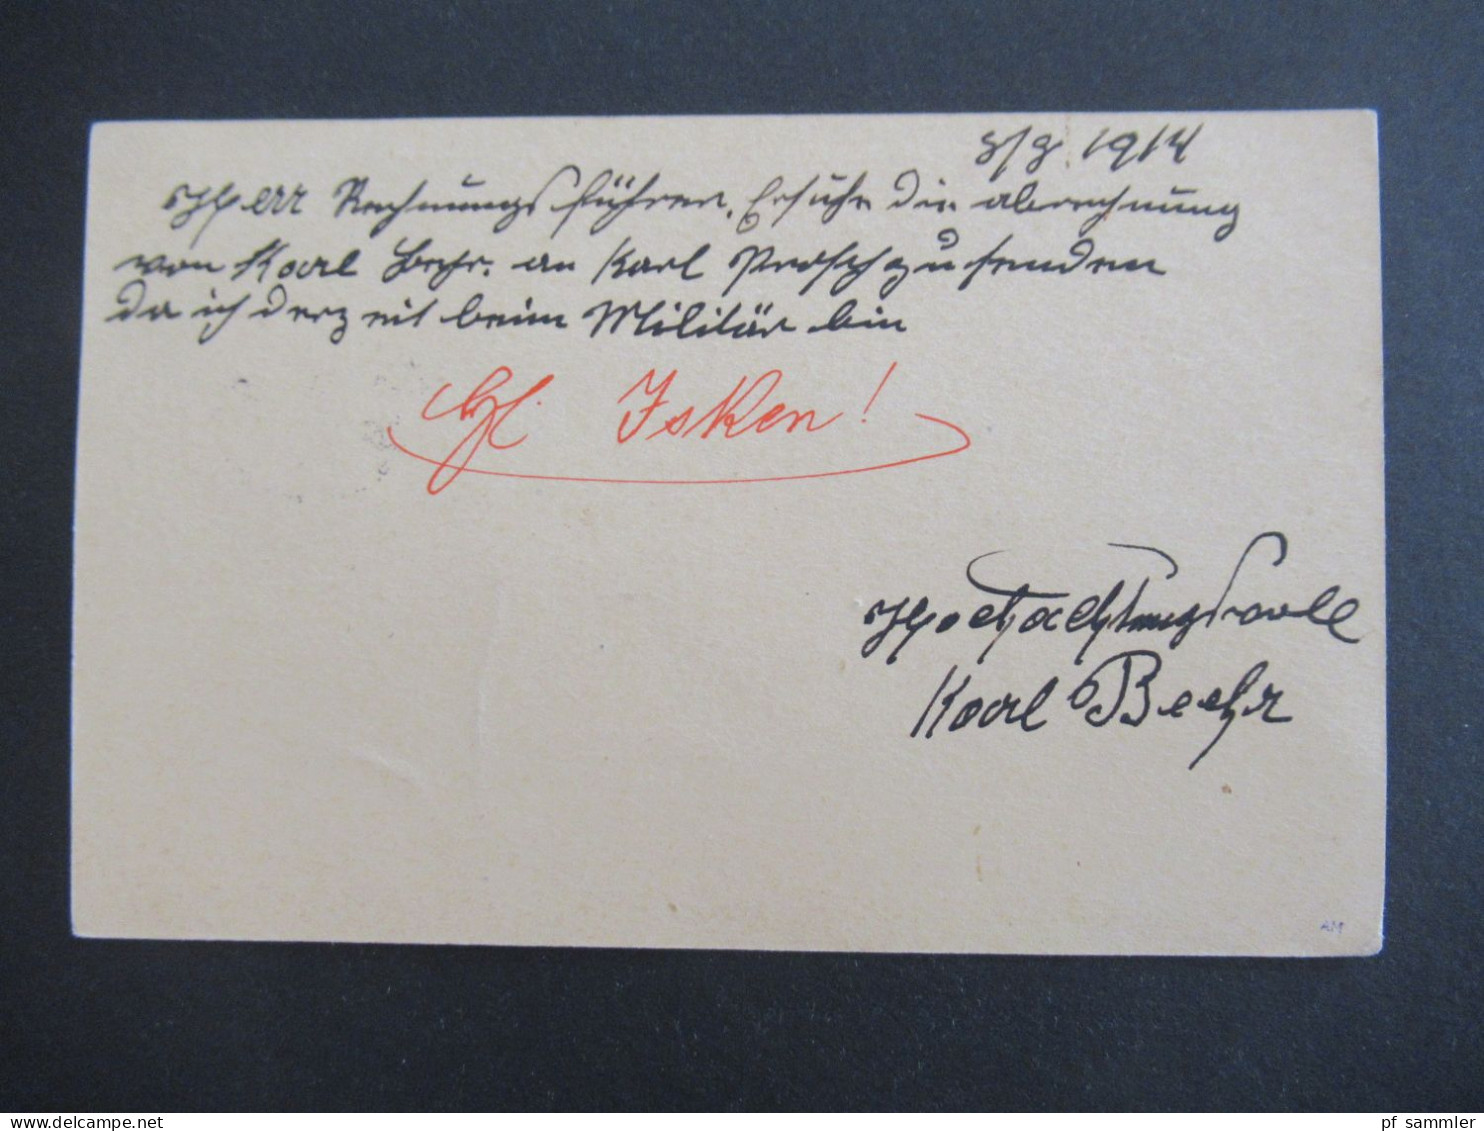 8/8. 1914
Herr Rechnungsführer, Ersuche die abrechnung
von Karl Beehr. an Karl zu senden
da ich derzeit beim Militär bin
Isken!
Hochachtungsvoll
Karl Beehr
AM
pf sammler